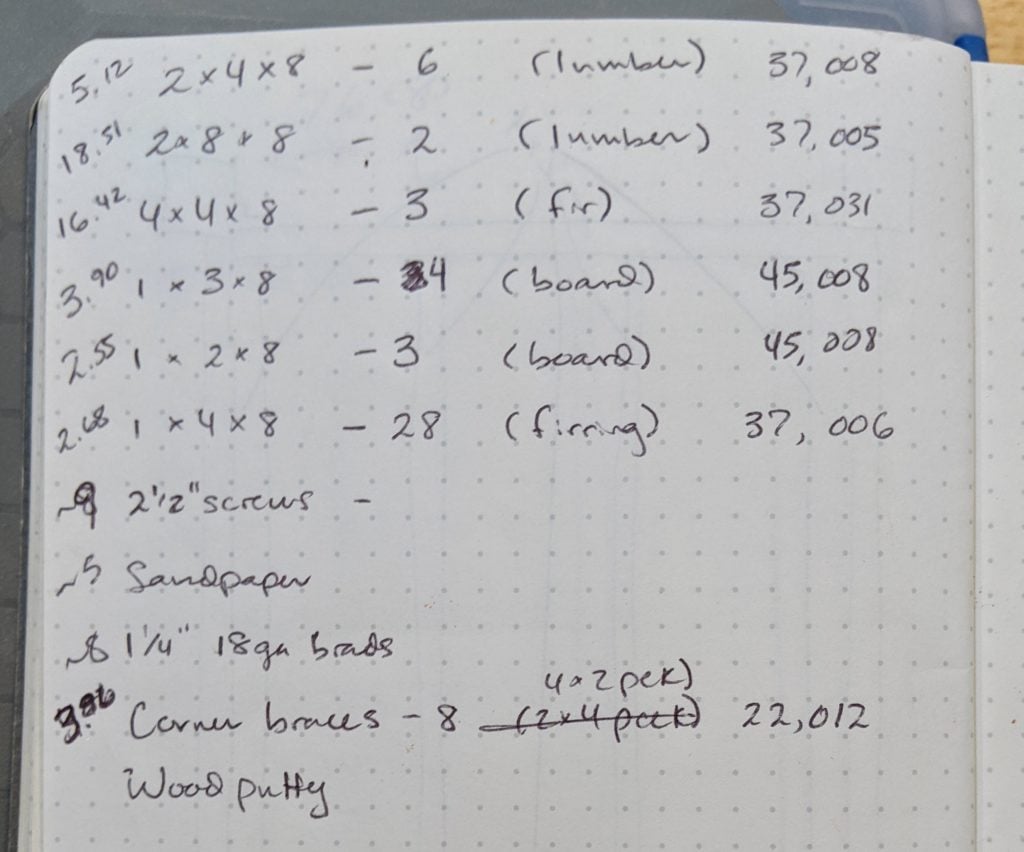 5.12 2x4x8 - 6 (lumber) 37,008
18.51 2x8x8 - 2 (lumber) 37,005
16.42 4x4x8 - 3 (fir) 37,031
3.90 1x3x8 - 4 (board) 45,008
2.55 1x2x8 - 3 (board) 45,008
2.68 1x4x8 - 28 (firring) 37,006
~9 2 1/2" screws -
~5 Sandpaper
~8 1 1/4" 18ga brads
4x2 pck)
Corner braces - 8 (2x4 pack) 22,012
Wood putty